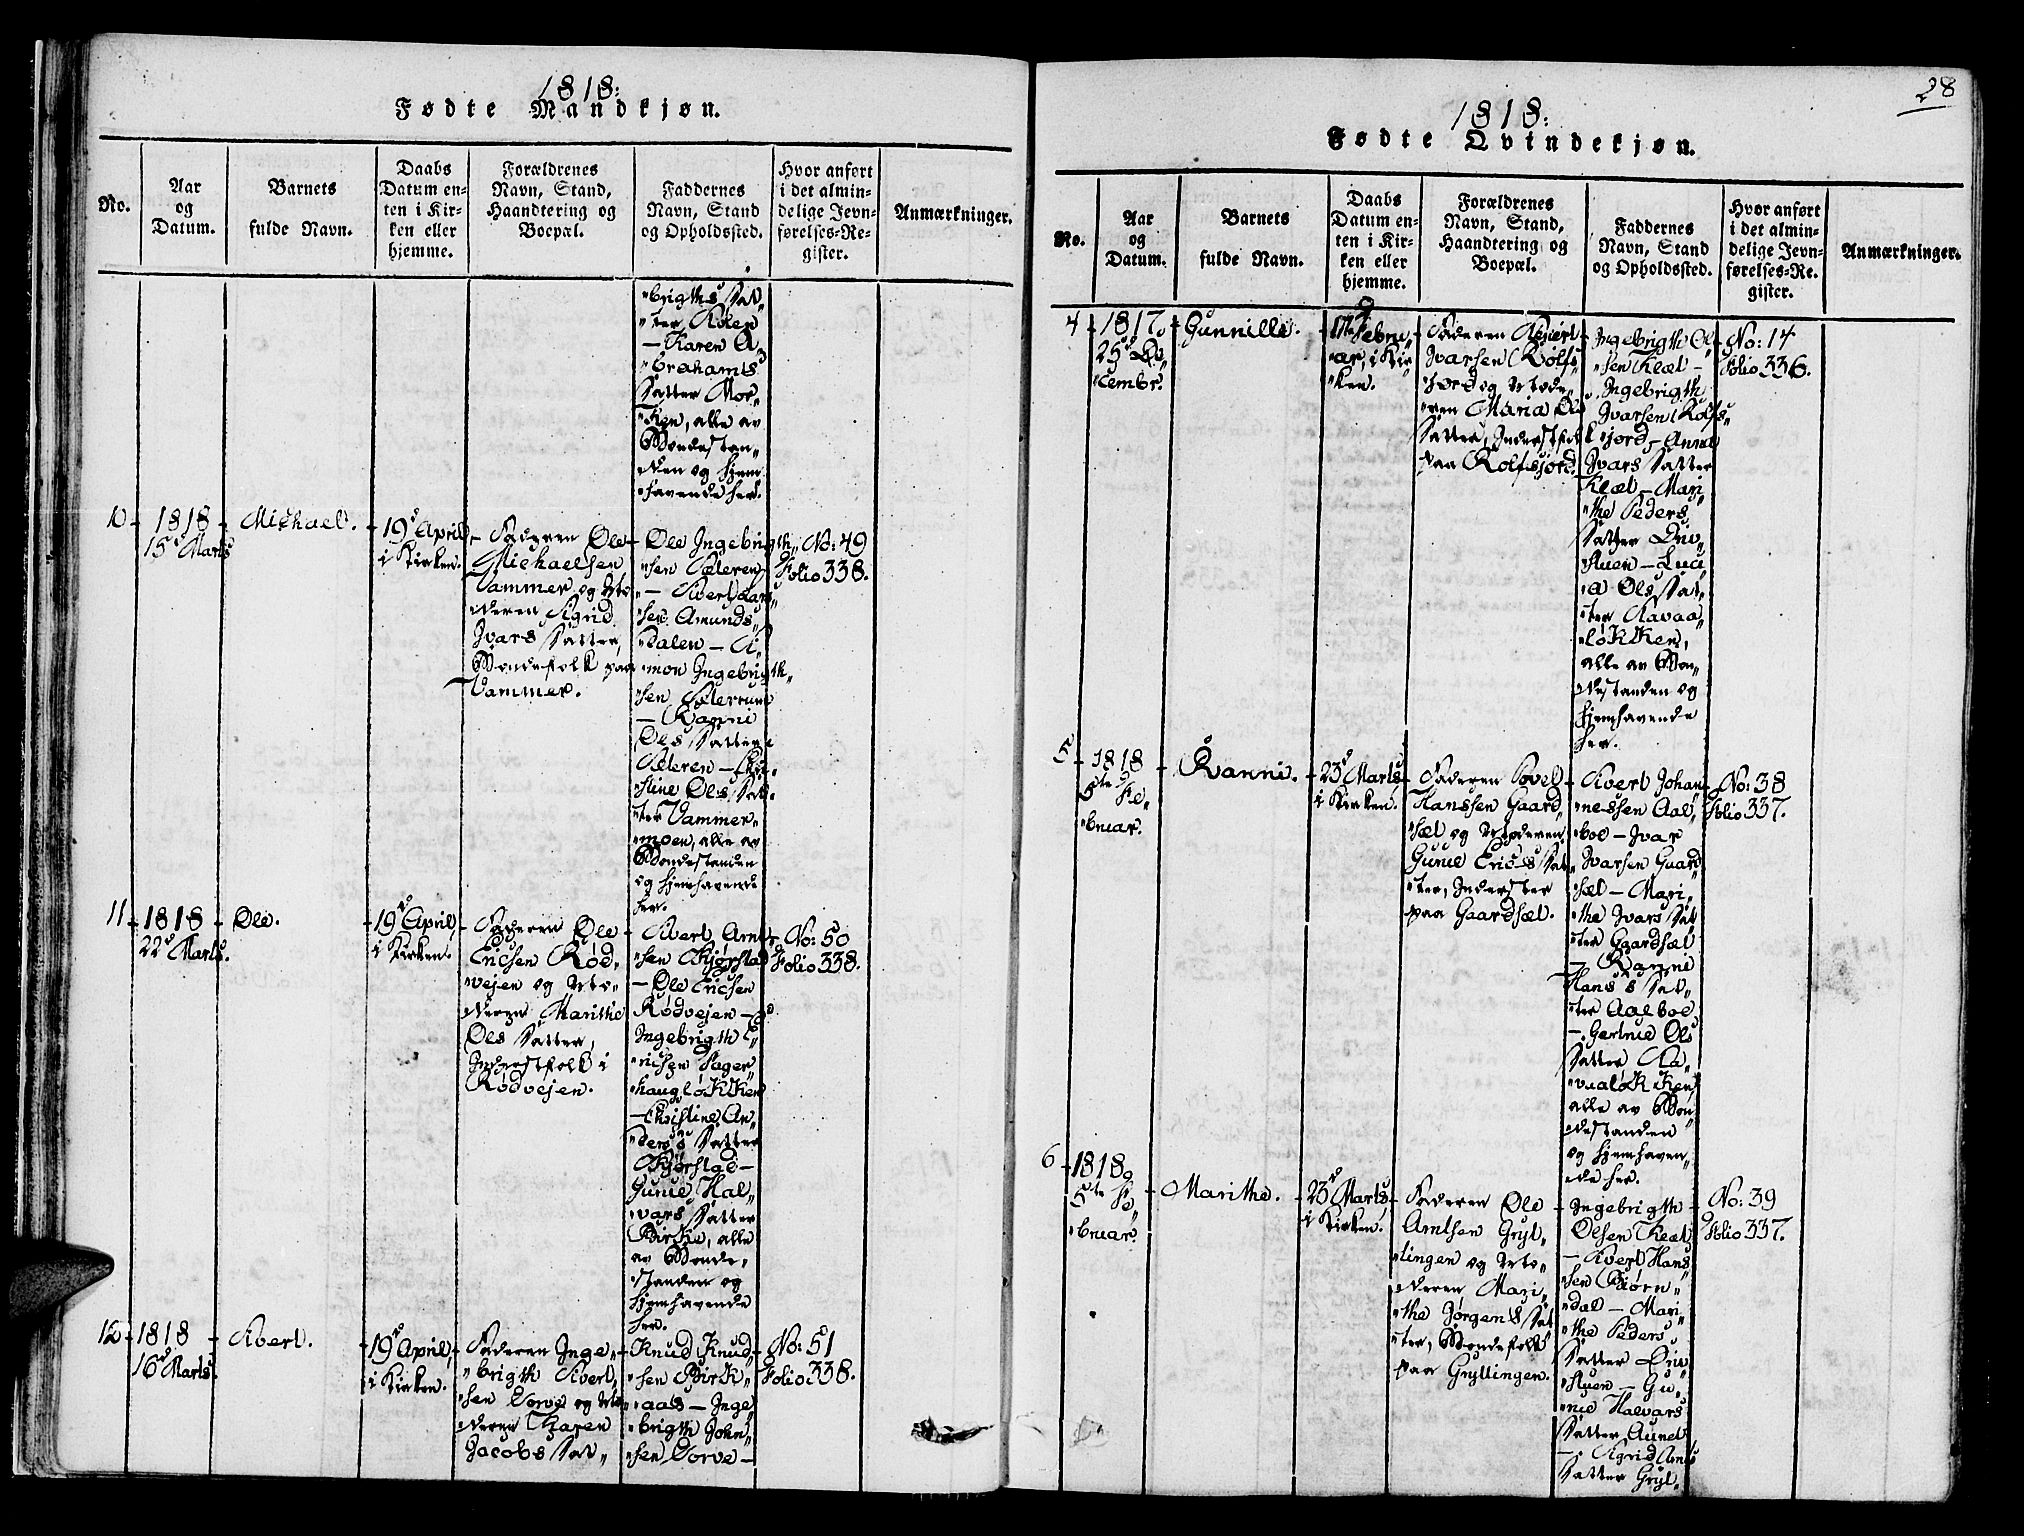 1818:
Fødte Mandkjøn.
No.
Aar
og
Datum.
Barnets
fulde Navn.
Daabs
Datum en-
ten i Kir-
ken eller
hjemme.
Forældrenes
Navn, Stand,
Haandtering og
Boepæl.
Faddernes
Navn, Stand
og Opholdssted.
Hvor anført
i det almin-
delige Jevn-
førelses-Re-
gister.
Anmærkninger.
"brigths Dat„
"ter, Kolen
— Karen A„
"brahams
Datter Mor„
"ken, alle av
Bondestan„
"den og hjem„
"havende her.
10
1818
15d Marts
Michael.
19d April,
i Kirken.
Faderen Ole
Michaelsen
Vammer og Mo„
"deren Sigrid
Ivars Datter,
Bondefolk paa
Vammer.
Ole Ingebrigth„
"sen Sæteren
— Sivert Lars„
"sen Amunds„
"dalen — Si„
"mon Ingebrigth„
"sen Sæterum
— Ranni
Ols Datter
Sæteren — Chri„
"stine Ols Dat„
"ter Vammer„
"moen, alle av
Bondestanden
og hjemhavende
her.
No: 49
Folio 338.
11
1818
22d Marts.
Ole.
19d April,
i Kirken.
Faderen Ole
Ericsen Rød„
"vejen og Mo„
"deren Marithe
Ols Datter,
Inderstfolk i
Rødvejen.
Sivert Arnt„
"sen Kjørstad
— Ole Ericsen
Rødvejen —
Ingebrigth E„
"ricsen Fager„
"haugløkken
— Christine An„
"ders's Datter
Kjørstad —
Gunild Hal„
"vars Datter
Birke, alle
av Bonde„
"standen og
hjemhavende
her.
No: 50
Folio 338.
12
1818
16d Marts.
Sivert.
19d April,
i Kirken.
Faderen Inge„
"brigth Sivert„
"sen Dorve og Mo„
"deren Karen
Jacobs Dat„
Knud Knud„
"sen Birk„
"aas — Inge„
"brigth John„
"sen Dorve —
No: 51
Folio 338.
28
1818:
Fødte Qvindekjøn.
No.
Aar
og
Datum.
Barnets
fulde Navn.
Daabs
Datum en-
ten i Kir-
ken eller
hjemme.
Forældrenes
Navn, Stand,
Haandtering og
Boepæl.
Faddernes
Navn, Stand
og Opholdssted.
Hvor anført
i det almin-
delige Jevn-
førelses-Re-
gister.
Anmærkninger.
4
1817.
25d De„
"cembr.
Gunnille.
Febru„
"ar, i Kir„
"ken.
Faderen Sivert
Ivarsen Rolfs„
"jord og Mode„
"ren Maria Ols
Datter, Inderstfolk
paa Rolfsjord.
Ingebrigth Ol„
"sen Klæt —
Ingebrigth
Ivarsen Rolfs„
"jord — Anne
Ivars Datter
Klæt — Mari„
"the Peders
Datter Driv„
"stuen — Luci„
"a Ols Dat„
"ter Ravaa„
"løkken,
alle av Bon„
"destanden og
hjemhavende
her.
No: 14
Folio 336.
5
1818
5te Fe„
"bruar.
Ranni.
23d Marts
i Kirken.
Faderen Povel
Hanssen Gaard„
"sæt og Moderen
Gunild Erics Dat„
"ter, Inderster
paa Gaardsæt.
Sivert Johan„
"nessen Aal„
"boe — Ivar
Ivarsen Gaard„
"sæt — Mari„
"the Ivars Dat„
"ter Gaardsæt
— Ranni
Hans's Dat„
"ter Aalboe
— Gertrud Ols
Datter Ra„
"vaaløkken
alle av Bon„
"destanden
og hjemhaven„
"de her.
No: 38
Folio 337.
6
1818
5te Fe„
"bruar.
Marithe.
23d Marts
i Kirken.
Faderen Ole
Arntsen Gryt„
"tingen og Mo„
"deren Mari„
"the Jørgens Dat„
"ter, Bondefolk
paa Gryttingen.
Ingebrigth
Olsen Klæt
— Sivert Hans„
"sen Biørn„
"dal — Mari„
"the Peders
Datter Driv„
"stuen — Gu„
"nild Halvars
Datter Aune
— Sigrid Arnts
Datter Gryt„
No: 39
Folio 337.